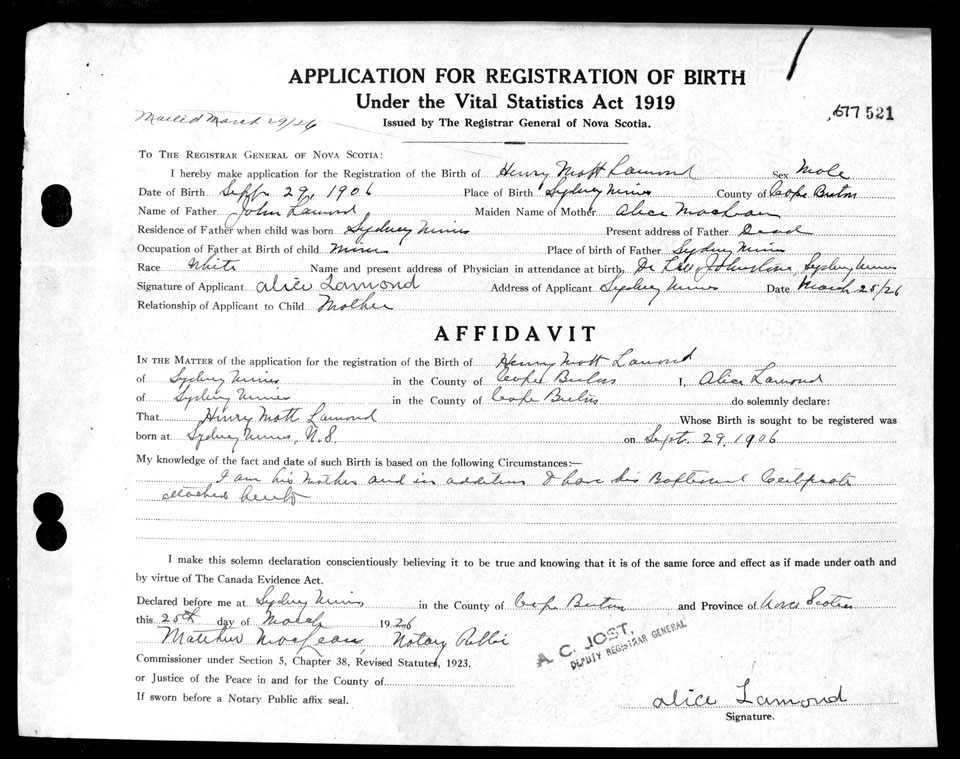 APPLICATION FOR REGISTRATION OF BIRTH
Under the Vital Statistics Act 1919
Issued by The Registrar General of Nova Scotia.
Mailed March 29/26
577521
TO THE REGISTRAR GENERAL OF NOVA SCOTIA:
I hereby make application for the Registration of the Birth of Henry Mott Lamond Sex Male
Date of Birth Sept 29, 1906 Place of Birth Sydney Mines County of Cape Breton
Name of Father John Lamond Maiden Name of Mother Alice MacLean
Residence of Father when child was born Sydney Mines Present address of Father Dead
Occupation of Father at Birth of child Miner Place of birth of Father Sydney Mines
Race White Name and present address of Physician in attendance at birth, Dr Johnstone, Sydney Mines
Signature of Applicant Alice Lamond Address of Applicant Sydney Mines Date March 25/26
Relationship of Applicant to Child Mother
AFFIDAVIT
IN THE MATTER of the application for the registration of the Birth of Henry Mott Lamond
of Sydney Mines in the County of Cape Breton I, Alice Lamond
of Sydney Mines in the County of Cape Breton do solemnly declare:
That Henry Mott Lamond Whose Birth is sought to be registered was
born at Sydney Mines, N.S. on Sept. 29, 1906
My knowledge of the fact and date of such Birth is based on the following Circumstances:—
I am his Mother and in addition I have his Baptismal Certificate
attached hereto
I make this solemn declaration conscientiously believing it to be true and knowing that it is of the same force and effect as if made under oath and
by virtue of The Canada Evidence Act.
Declared before me at Sydney Mines in the County of Cape Breton and Province of Nova Scotia
this 25th day of March 1926
Matthew MacLean, Notary Public
A. C. JOST,
DEPUTY REGISTRAR GENERAL
Commissioner under Section 5, Chapter 38, Revised Statutes, 1923.
or Justice of the Peace in and for the County of
If sworn before a Notary Public affix seal.
Alice Lamond
Signature.